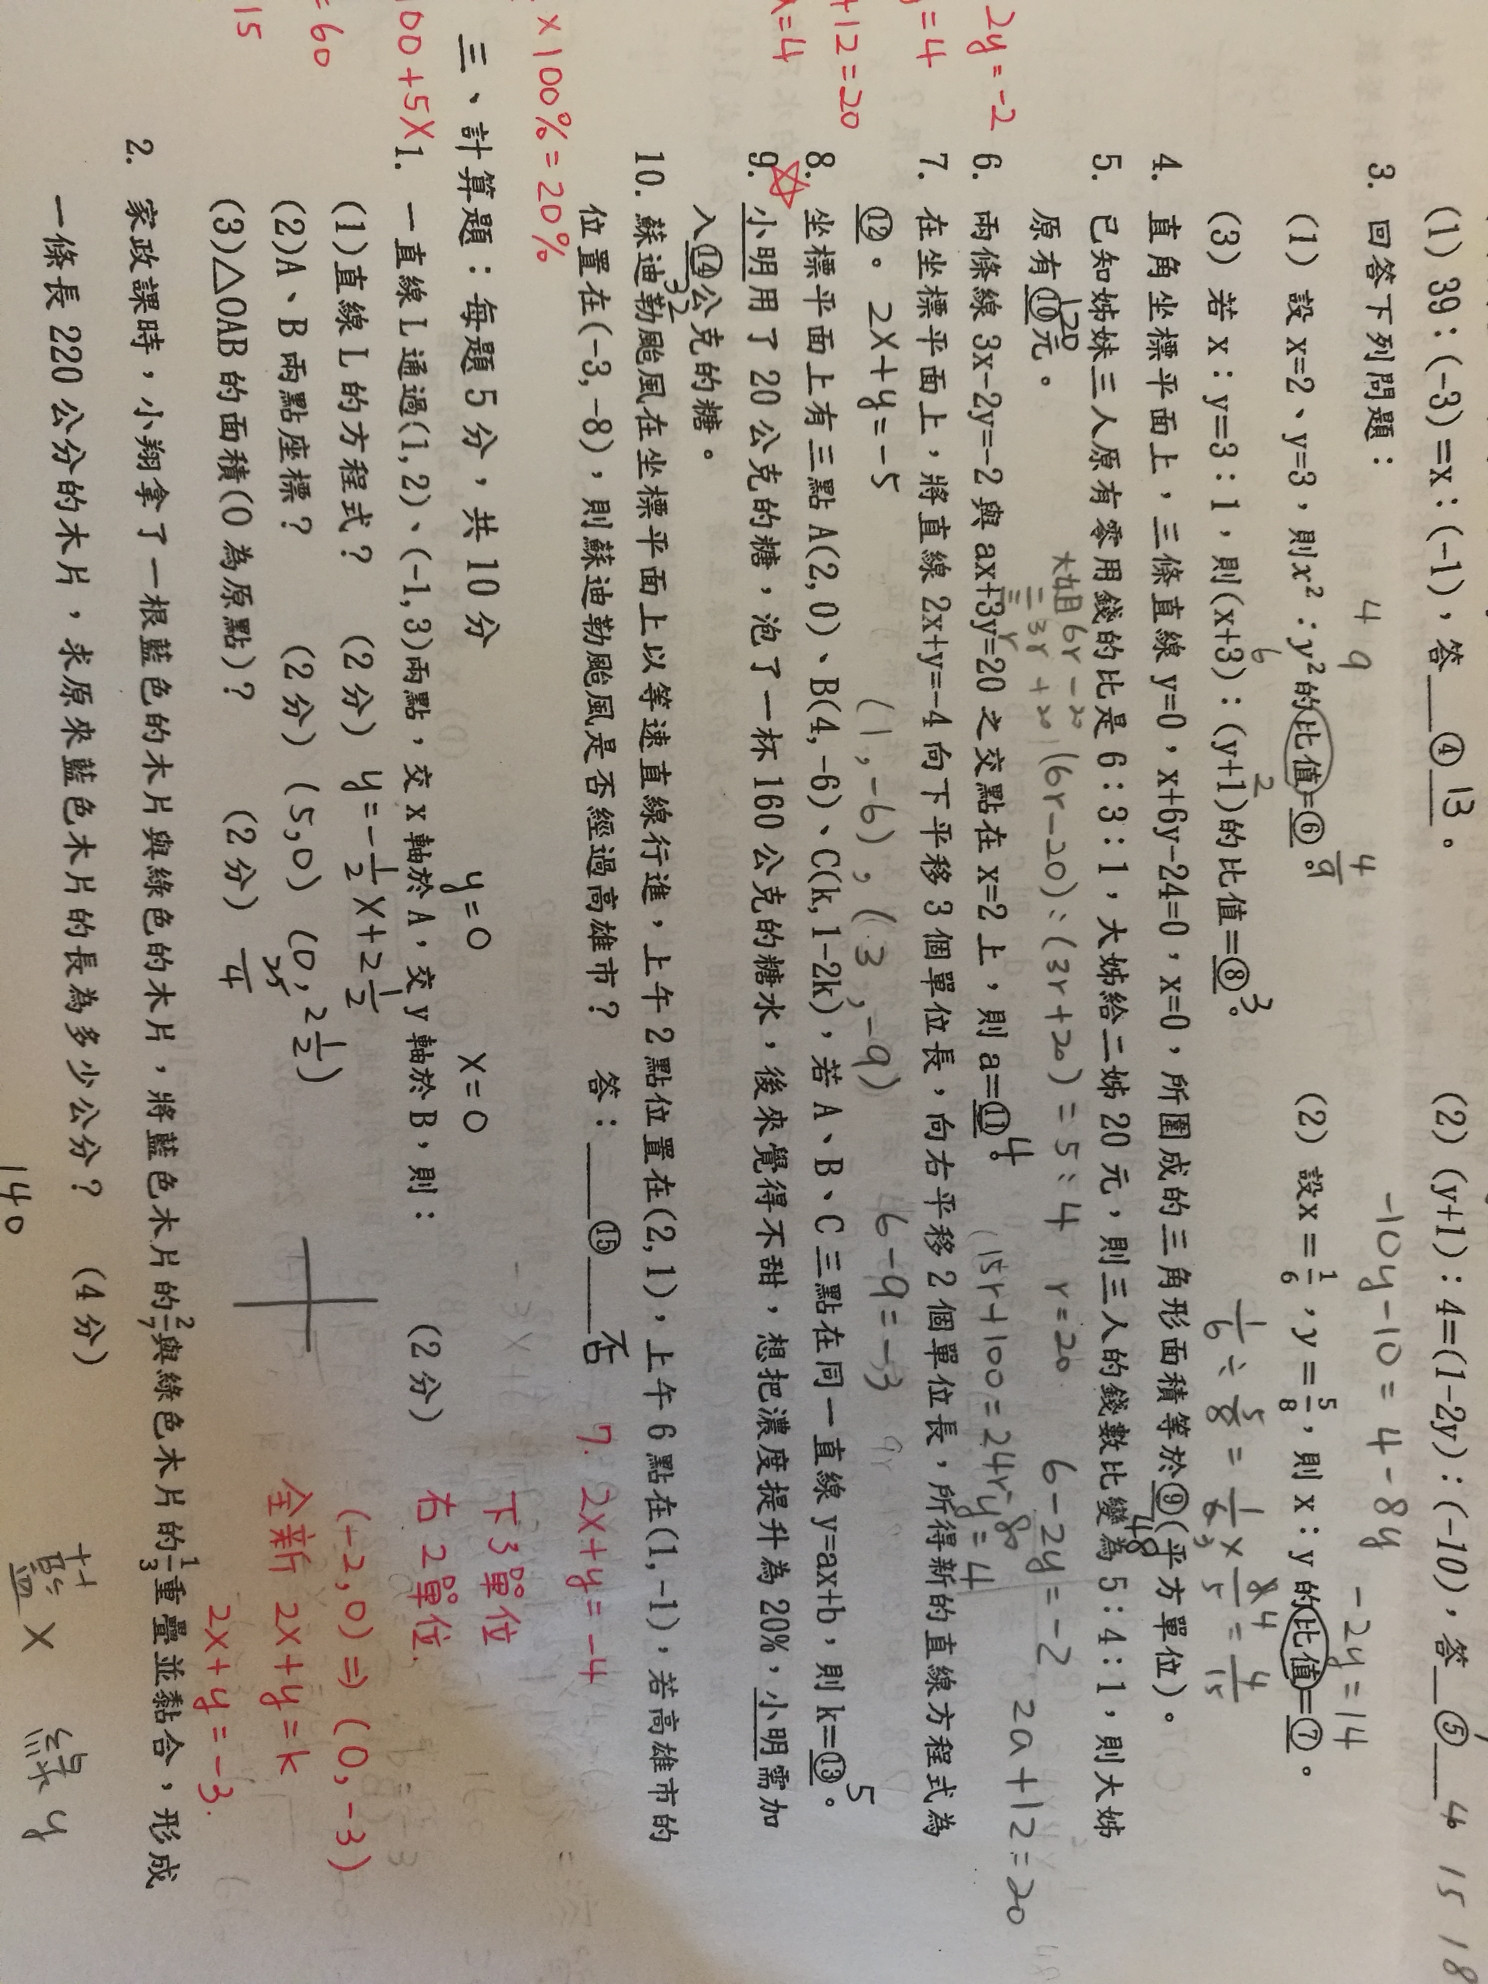 (1) 39：(-3)=x：(-1)，答＿＿④ 13＿。 (2) (y+1)：4=(1-2y)：(-10)，答＿⑤＿＿
3. 回答下列問題：
-10y-10=4-8y
-2y=14
4 9
(1) 設 x=2、y=3，則x²：y²的比值=⑥。4/9 (2) 設x=1/6，y=5/8，則 x：y 的比值=⑦。
6 2
1/6÷5/8=1/6×8/5=4/15
(3) 若 x：y=3：1，則(x+3)：(y+1)的比值=⑧。3
4. 直角坐標平面上，三條直線 y=0，x+6y-24=0，x=0，所圍成的三角形面積等於⑨(平方單位)。
48
5. 已知姊姊妹三人原有零用錢的比是 6：3：1，大姊給二姊 20 元，則三人的錢數比變為 5：4：1，則大姊
原有⑩元。
120
大姐 6r-20
二 3r+20
(6r-20)：(3r+20)=5：4 r=20
6-2y=-2
2a+12=20
6. 兩條線 3x-2y=-2 與 ax+3y=20 之交點在 x=2 上，則 a=⑪。4
y=4
7. 在坐標平面上，將直線 2x+y=-4 向下平移 3 個單位長，向右平移 2 個單位長，所得新的直線方程式為
⑫。 2x+y=-5
8. 坐標平面上有三點 A(2,0)、B(4,-6)、C(k,1-2k)，若 A、B、C 三點在同一直線 y=ax+b，則 k=⑬。5
9. 小明用了 20 公克的糖，泡了一杯 160 公克的糖水，後來覺得不甜，想把濃度提升為 20%，小明需加
入⑭公克的糖。
10. 蘇迪勒颱風在坐標平面上以等速直線行進，上午 2 點位置在(2,1)，上午 6 點在(1,-1)，若高雄市的
位置在(-3,-8)，則蘇迪勒颱風是否經過高雄市？ 答：＿＿⑮＿＿否
三、計算題：每題 5 分，共 10 分
y=0 x=0
1. 一直線 L 通過(1,2)、(-1,3)兩點，交 x 軸於 A，交 y 軸於 B，則： (2 分)
(1)直線 L 的方程式？ (2 分) y=-1/2x+2 1/2
(2)A、B 兩點座標？ (2 分) (5,0) (0,2 1/2)
(3)△OAB 的面積(O 為原點)？ (2 分) 25/4
7. 2x+y=-4
下3單位
右2單位
(-2,0)⇒(0,-3)
全新 2x+y=k
2x+y=-3.
2. 家政課時，小翔拿了一根藍色的木片與綠色的木片，將藍色木片的2/7與綠色木片的1/3重疊並黏合，形成
一條長 220 公分的木片，求原來藍色木片的長為多少公分？ (4 分)
140
藍 x 綠 y
2y=-2
=4
+12=20
=4
×100%=20%
00+5x
=60
15